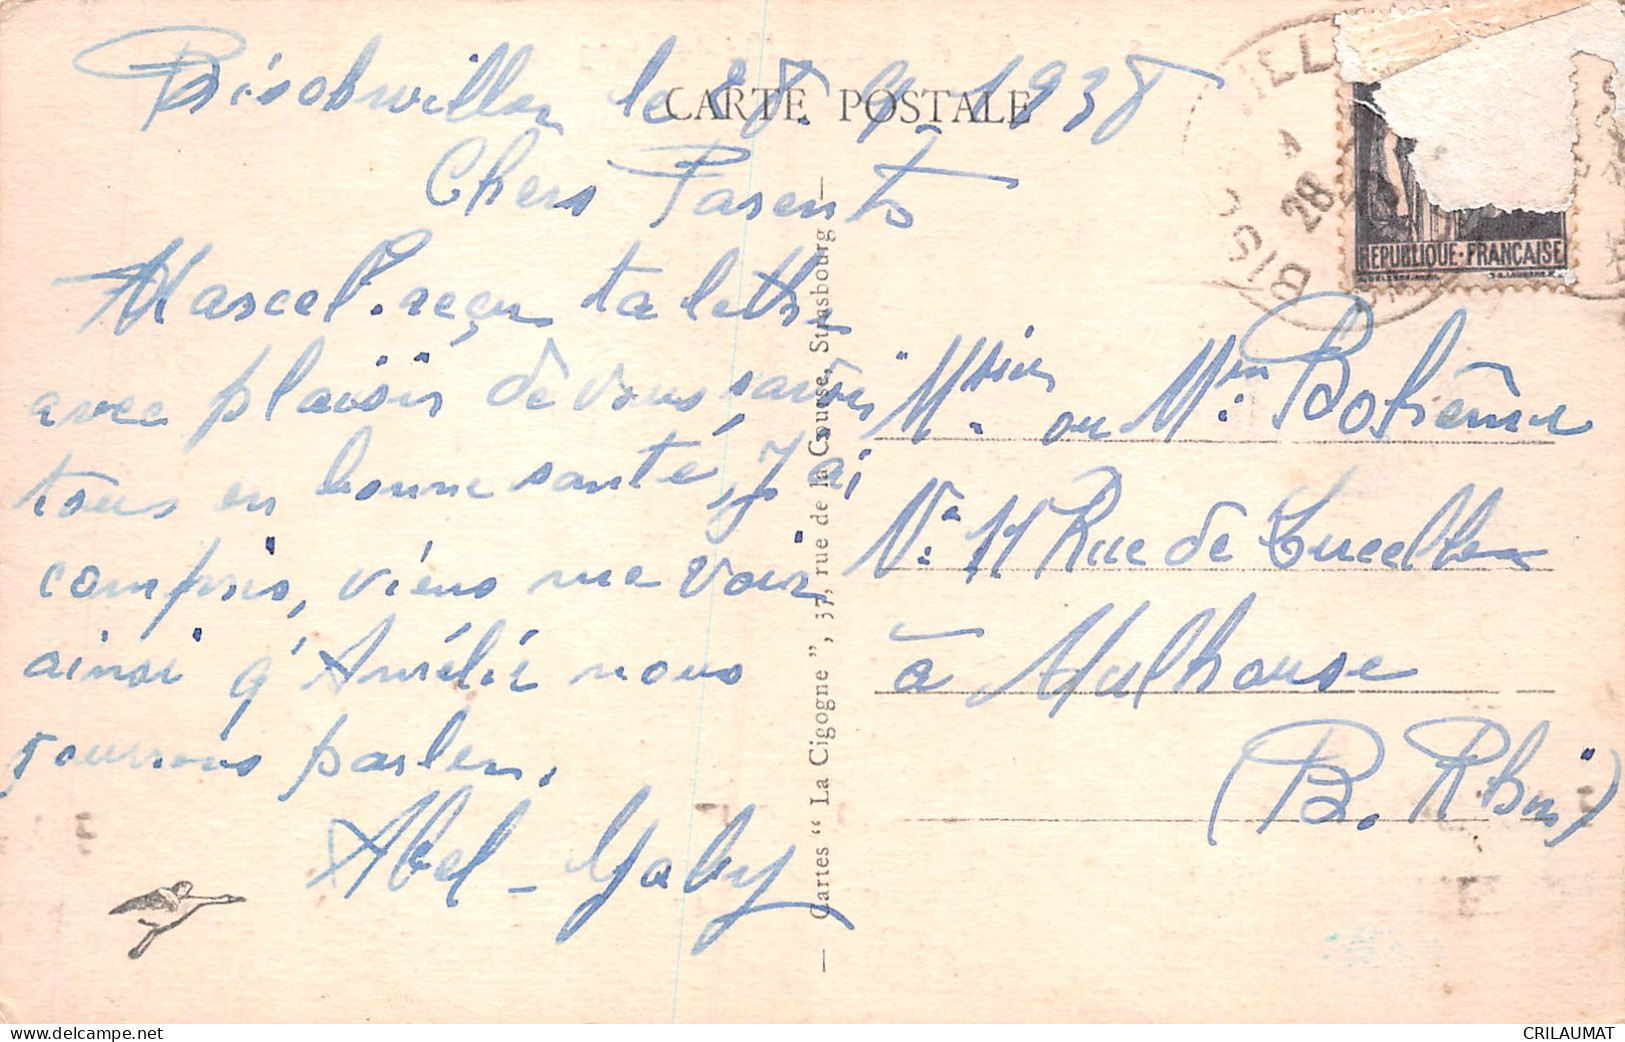 CARTE POSTALE
Bischwiller le 28. 9. 1938
Chers Parents
Marcel. reçu ta lettre
avec plaisir de vous savoir
tous en bonne santé, J'ai
compris, viens me voir
ainsi q' Aurélie nous
pourrons parler.
Abel - Gaby
Cartes “ La Cigogne ”, 37, rue de la Course, Strasbourg
BISC VILL
28
REPUBLIQUE·FRANÇAISE
Msieu ou Mm Bohême
No 11 Rue de
à Mulhouse
(B. Rhin)
CRILAUMAT